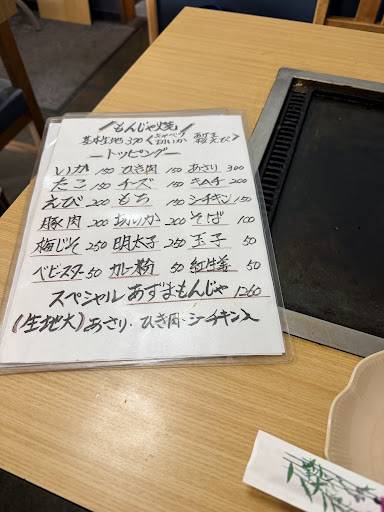 もんじゃ焼
基本生地 370 <キャベツ 切いか あげ玉 桜えび>
ートッピングー
いか 150 ひき肉 150 あさり 300
たこ 150 チーズ 150 キムチ 200
えび 200 もち 150 シーチキン 150
豚肉 200 おりいか 200 そば 100
梅じそ 250 明太子 250 玉子 50
ベビスター 50 カレー粉 50 紅生姜 50
スペシャル あずまもんじゃ 1260
(生地大) あさり・ひき肉・シーチキン入